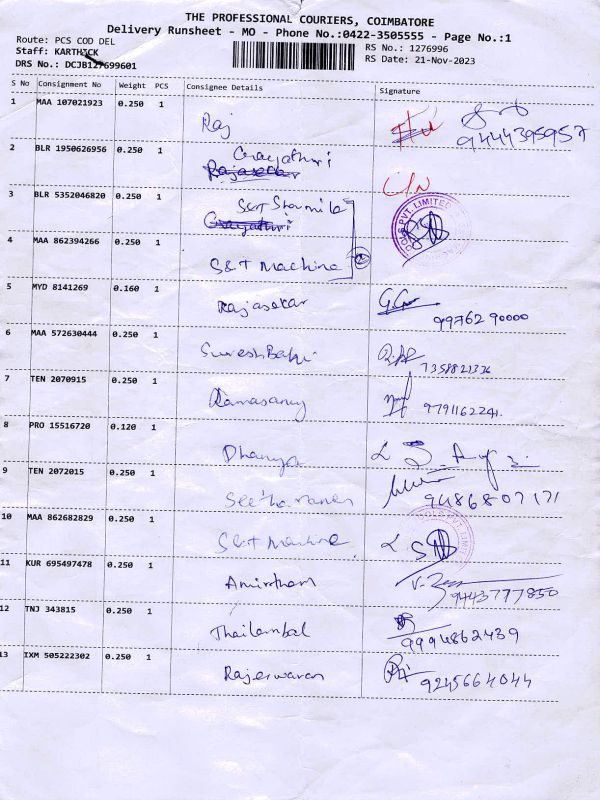 THE PROFESSIONAL COURIERS, COIMBATORE
Delivery Runsheet - MO - Phone No.:0422-3505555 - Page No.:1
Route: PCS COD DEL
RS No.: 1276996
Staff: KARTHICK
RS Date: 21-Nov-2023
DRS No.: DCJB127699601
S No Consignment No Weight PCS Consignee Details Signature
1 MAA 107021923 0.250 1 Raj 9444395957
2 BLR 1950626956 0.250 1 Gayathri
Rajasekar
3 BLR 5352046820 0.250 1 S&T Sharmila
Gayathri
4 MAA 862394266 0.250 1 S&T Machine
5 MYD 8141269 0.160 1 Rajasekar 9976290000
6 MAA 572630444 0.250 1 Suresh Babu
7 TEN 2070915 0.250 1 Ramasamy 9791162241.
8 PRO 15516720 0.120 1 Dhanya
9 TEN 2072015 0.250 1 Seetharaman 9486807171
10 MAA 862682829 0.250 1 S&T Machine
11 KUR 695497478 0.250 1 Amirtham 9443777850
12 TNJ 343815 0.250 1 Thailambal 9994862439
13 IXM 505222302 0.250 1 Rajeswaran 9245664044